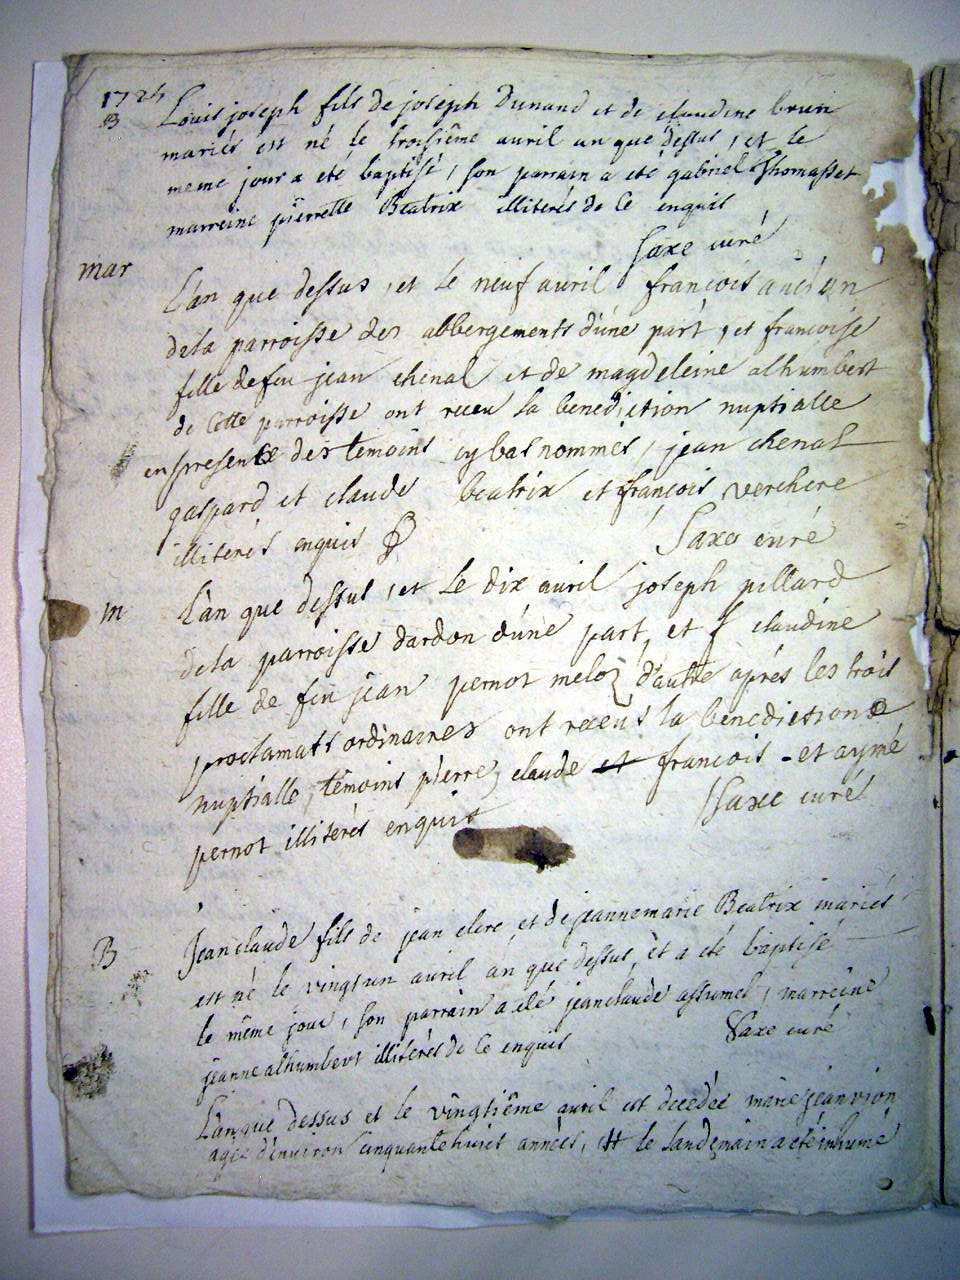 1724
B Louis joseph fils de joseph Dunand et de claudine brun
mariés est né le troisième avril an que dessus, et le
meme jour a eté baptisé, son parrain a eté gabriel Thomasset
marreine pierrette Beatrix illiterés de ce enquis
Saxe curé
mar
L'an que dessus, et le neuf avril françois
de la parroisse des abbergements d'une part, et francoise
fille de feu jean chenal et de magdeleine alhumbert
de cette parroisse ont receu la benediction nuptialle
en presence des temoins cy bas nommés, jean chenal
gaspard et claude beatrix et françois verchere
illiterés enquis
Saxe curé
m L'an que dessus, et le dix avril joseph pillard
de la parroisse dardon d'une part, et claudine
fille de feu jean pernot meloz d'autre après les trois
proclamats ordinaires ont receus la benediction
nuptialle, témoins pierre, claude et francois - et aymé
pernot illiterés enquis
Saxe curé
B Jean claude fils de jean clerc, et de jeanne marie Beatrix mariés
est né le vingt un avril an que dessus, et a eté baptisé
le même jour, son parrain a eté jean claude assumel, marreine
jeanne alhumbert illiterés de ce enquis
Saxe curé
L'an que dessus et le vingtième avril est decedée marie jeanvion
agée d'environ cinquante huict années, et le landemain a eté inhumé